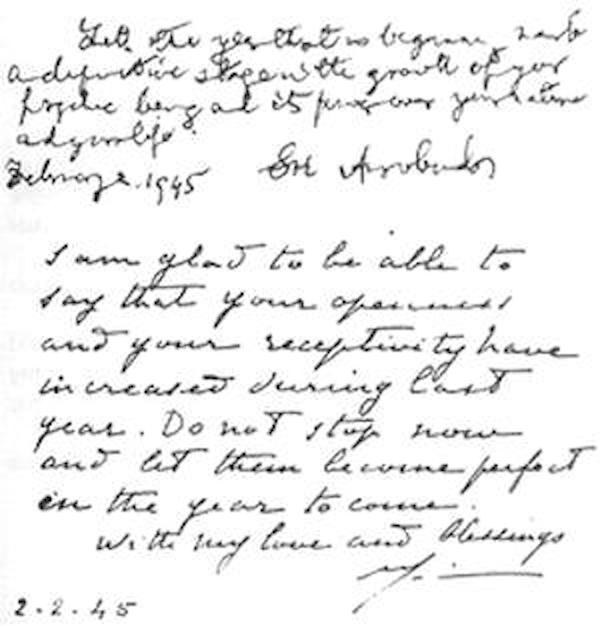 Let the year that is beginning mark
a definitive stage in the growth of your
psychic being and its power over your nature
and your life.
February 2. 1945 Sri Aurobindo
I am glad to be able to
say that your openness
and your receptivity have
increased during last
year. Do not stop now
and let them become perfect
in the year to come.
With my love and blessings
2.2.45